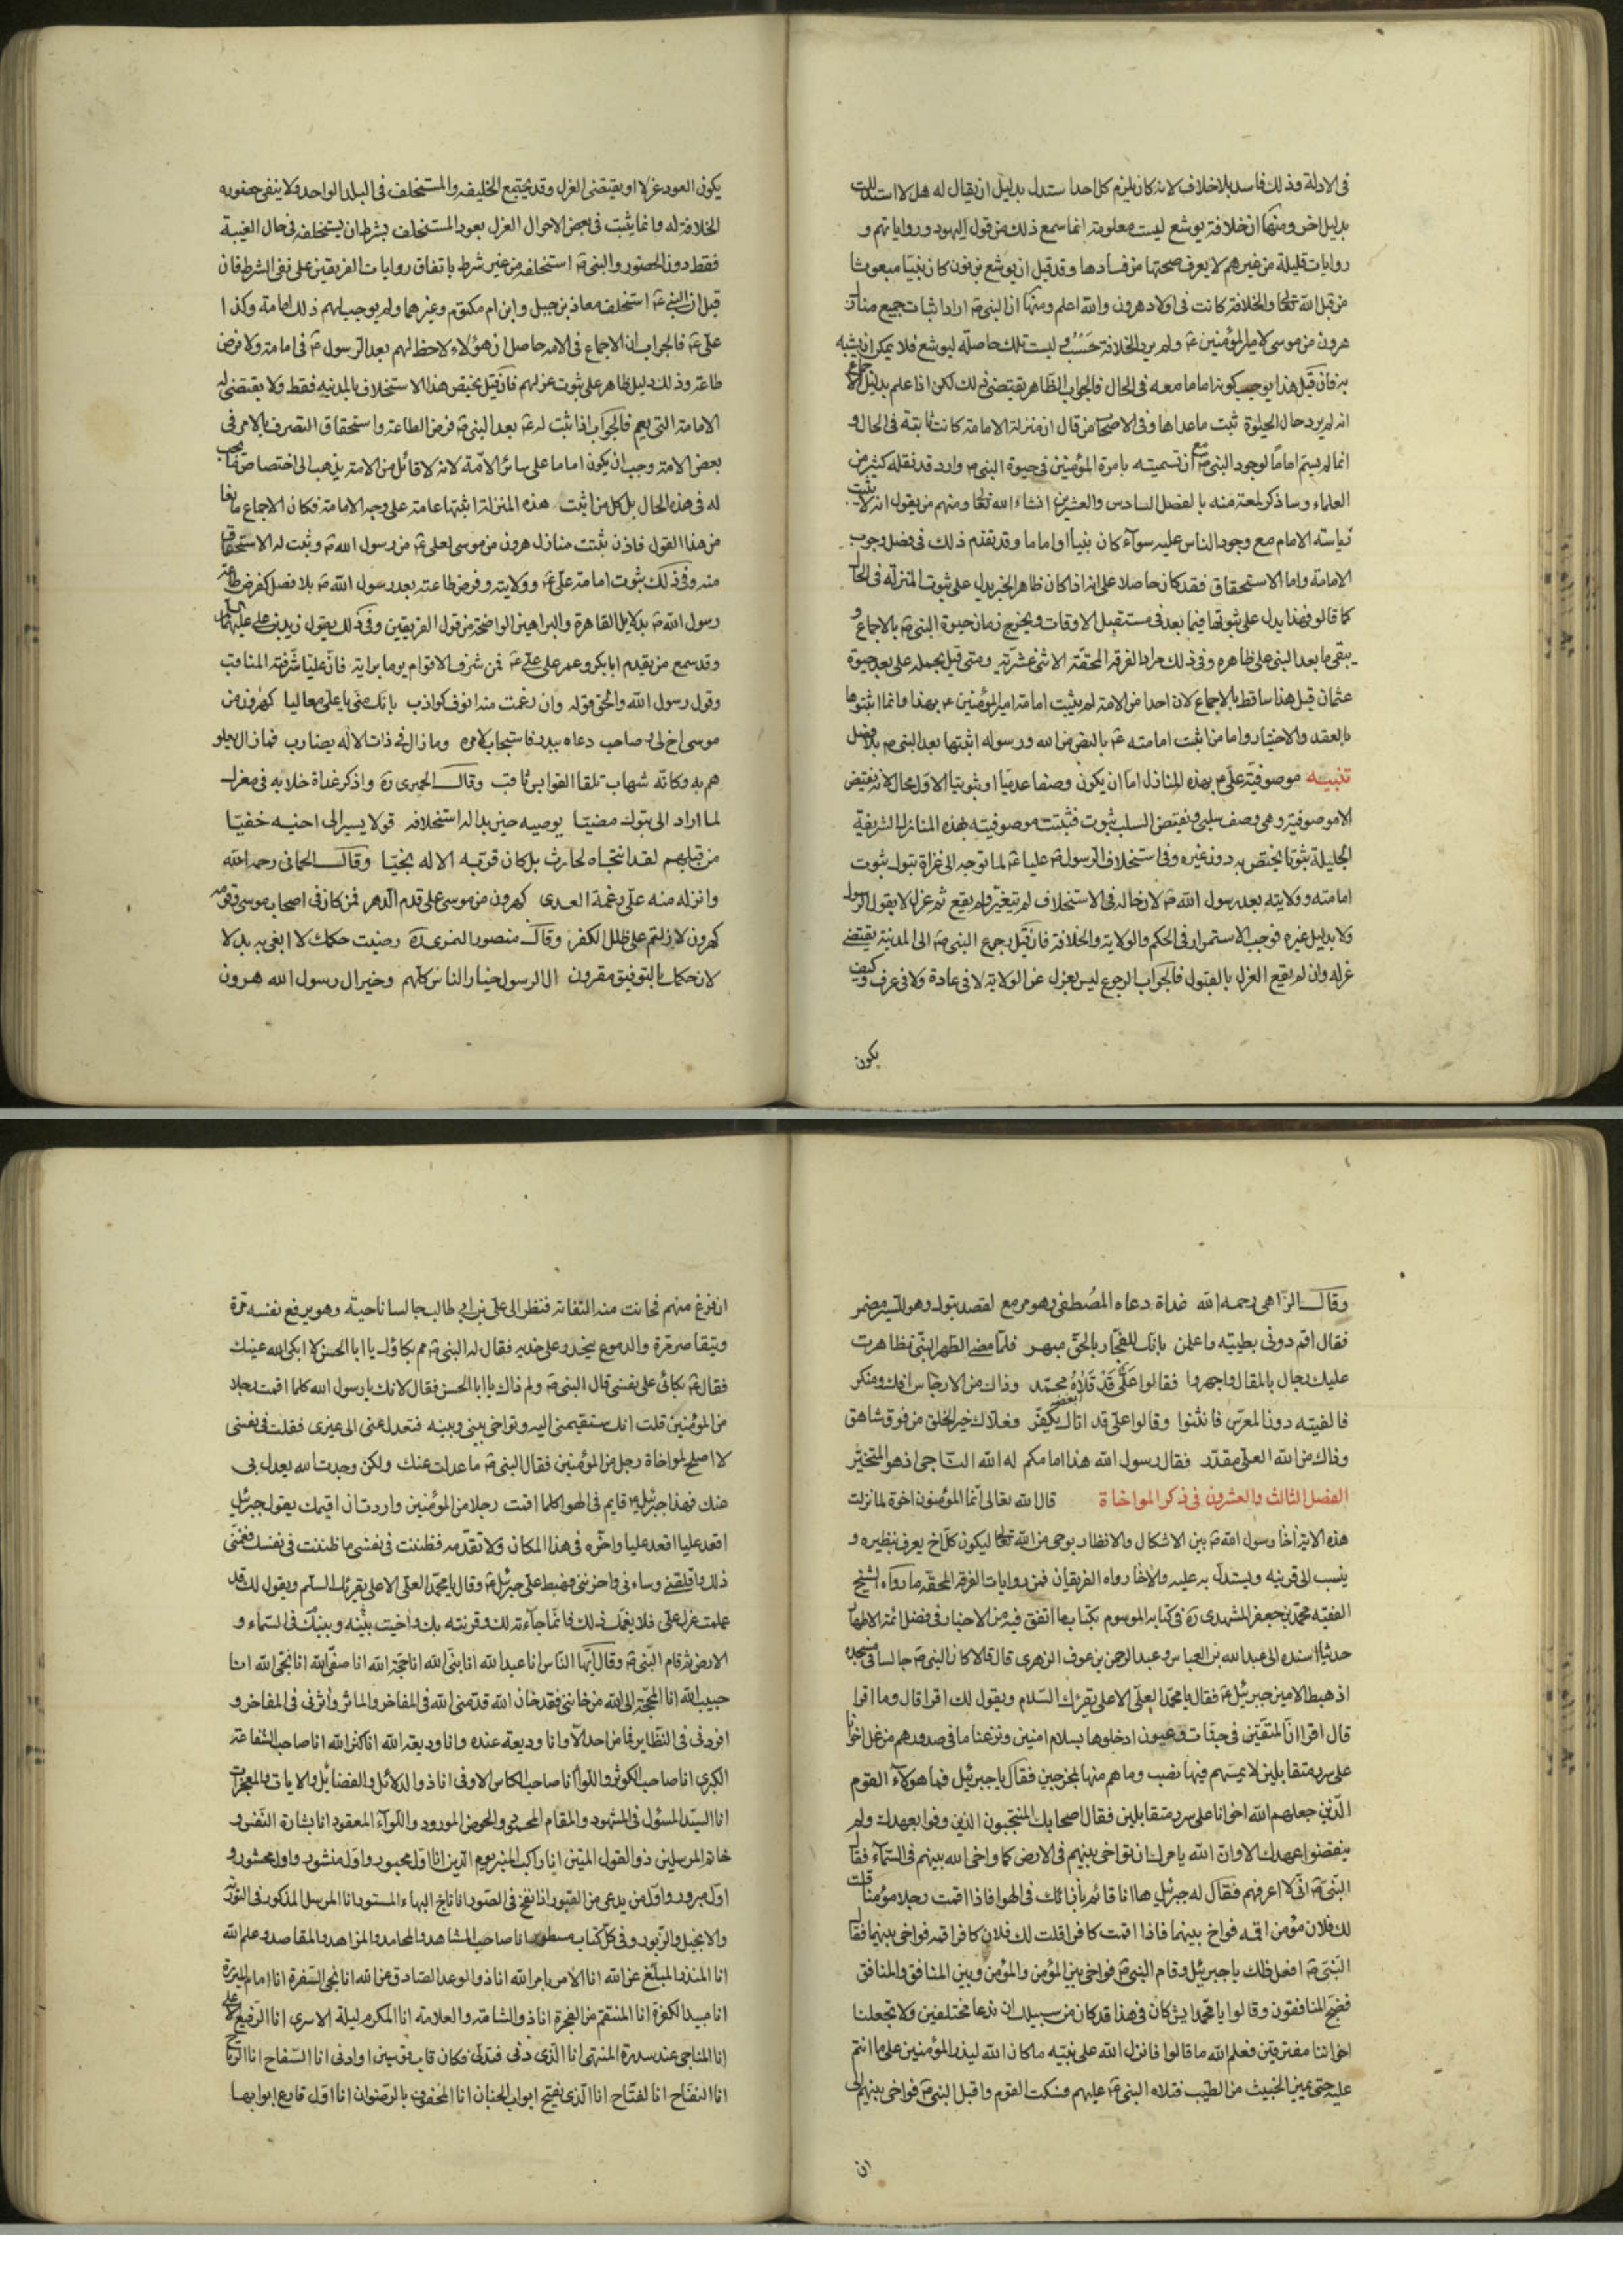 فى الادلة وذلك فاسد بلا خلاف لانه كان يلزم كل احد استدل بدليل ان يقال له هل لا استدللت
بدليل اخر ومنها ان خلافة يوشع ليست معلومة انما سمع ذلك من قول اليهود ورواياتهم و
روايات قليلة من غيرهم لا يعرف صحتها من فسادها وقد قيل ان يوشع بن نون كان نبيا مبعوثا
من قبل الله تعالى والخلافة كانت فى اولاد هرون والله اعلم ومنها ان النبى ص اراد اثبات جميع منازل
هرون من موسى لامير المؤمنين ع ولم يرد الخلافة حسب ليست تلك حاصلة ليوشع فلا يمكن ان يشبه
به فان قيل هذا يوجب كونه اماما معه فى الحال فالجواب الظاهر يقتضى ذلك لكن اذا علم بدليل الاجماع
انه لم يرد حال الحيوة ثبت ما عداها وفى الاصحاب من قال ان منزلة الامامة كانت ثابتة فى الحال و
انما لم يسم اماما لوجود النبى ص مع ان تسميته بامرة المؤمنين فى حيوة النبى ص وارد قد نقله كثير من
العلماء وساذكر لمعة منه بالفصل السادس والعشرين انشاء الله تعالى ومنهم من يقول انه لا يثبت
رياسة الامام مع وجود الناس عليه سوآء كان نبيا او اماما وقد تقدم ذلك فى فصل وجوب
الامامة واما الاستحقاق فقد كان حاصلا على انه اذا كان ظاهر الخبر يدل على ثبوت المنزلة فى الحال
كما قالو فهذا يدل على ثبوتها فيما بعد فى مستقبل الاوقات ويخرج زمان حيوة النبى ص بالاجماع و
يبقى ما بعد النبى على ظاهره وفى ذلك مراد الفرقة المحقة الاثنى عشرية ومتى قيل نحمله على بعد حيوة
عثمان قيل هذا ساقط بالاجماع لان احدا من الامة لم يثبت امامة امير المؤمنين ع بهذا وانما اثبتوها
بالعقد والاختيار واما من اثبت امامته ع بالنص من الله ورسوله اثبتها بعد النبى ص بلا فصل
تنبيه موصوفية على ع بهذه المنازل اما ان يكون وصفا عدميا او ثبوتيا الاول محال لانه نقيض
الاموصوفية وهى وصف سلبى ونقيض السلب ثبوت فثبتت موصوفيته بهذه المنازل الشريفة
الجليلة ثبوتا يختص به دون غيره وفى استخلاف الرسول ص عليا ع لما توجه الى غزاة تبوك ثبوت
امامته وولايته بعد رسول الله ص لان حاله فى الاستخلاف لم تتغير ولم يقع ثم عزل لا بقول الرسول
ولا بدليل غيره فوجب الاستمرار فى الحكم والولاية والخلافة فان قيل رجوع النبى ص الى المدينة يقتضى
عزله وان لم يقع العزل بالقول فالجواب الرجوع ليس بعزل عن الولاية لا فى عادة ولا فى عرف وكيف
يكون
يكون العود عزلا او يقتضى العزل وقد يجتمع الخليفة والمستخلف فى البلد الواحد ولا ينفى حضوره
الخلافة له وانما يثبت فى بعض الاحوال العزل بعود المستخلف بشرط ان يستخلفه فى حال الغيبة
فقط دون الحضور والنبى ص استخلفه من غير شرط باتفاق روايات الفريقين على نفى الشرط فان
قيل ان النبى ع استخلف معاذ بن جبل وابن ام مكتوم وغيرهما ولم يوجب لهم ذلك امامة وكذا
على ع فالجواب ان الاجماع فى الامة حاصل ان هؤلاء لاحظ لهم بعد الرسول ع فى امامة ولا فرض
طاعة وذلك دليل ظاهر على ثبوت عزلهم فان قيل يختص هذا الاستخلاف بالمدينة فقط ولا يقتضى له
الامامة التى تعم فالجواب اذا ثبت له ع بعد النبى ص فرض الطاعة واستحقاق التصرف بالامر فى
بعض الامة وجب ان يكون اماما على سائر الامة لانه لا قائل من الامة يذهب الى اختصاص ما يجب
له فى هذه الحال بل كل من اثبت هذه المنزلة اثبتها عامة على وجه الامامة فكان الاجماع مانعا
من هذا القول فاذن ثبتت منازل هرون من موسى لعلى ع من رسول الله ص وثبت له الاستحقاق
منه وفى ذلك ثبوت امامة على ع وولايته وفرض طاعته بعد رسول الله ص بلا فصل كفرض طاعة
رسول الله ص بدلايل القاهرة والبراهين الواضحة من قول الفريقين وفى ذلك يقول زيد بن على عليهما
وقد سمع من يقدم ابا بكر وعمر على على ع فمن شرف الاقوام يوما برايه فان عليا شرفته المناقب
وقول رسول الله والحق قوله وان رغمت منه انوف كواذب بانك منى يا على معاليا كهرون من
موسى اخ لى وصاحب دعاه ببدر فاستجاب لامره وما زال فى ذات الاله يضارب فما زال يعلو
هم به وكانه شهاب تلقا القوابس ثاقب وقال الحميرى ره واذكر غداة خلا به فى معزل
لما اراد الى تبوك مضيا يوصيه حين بدا له استخلافه قولا يسير الى اخيه خفيا
من قبلهم لقد انتجاه لحارث بل كان قربه الاله نجيا وقال الحمانى رحمه الله
وانزله منه على رغمة العدى كهرون من موسى على قدم الدهر فمن كان فى اصحاب موسى وقومه
كهرون لا زلتم على ظلل الكفر وقال منصور النمرى ره رضيت حكمك لا ابغى به بدلا
لان حكمك بالتوفيق مقرون ال الرسول خيار الناس كلهم وخير ال رسول الله هرون
وقال الزاهى رحمه الله غداة دعاه المصطفى وهو مزمع لقصد تبوك وهو للسير مضمر
فقال اقم دونى بطيبة واعلمن بانك للفجار بالحق مبهر فلما مضى الطهر النبى تظاهرت
عليك رجال بالمقال واجهروا فقالوا على قد قلاه محمد وذاك من الارجاس افك ومنكر
فالفيته دون المعرس فانثنوا وقالوا على قد اتاك يكفر وعلاك خير الخلق من فوق شاهق
وذاك من الله العلى مقدر فقال رسول الله هذا امامكم له الله الناجى اذ هو المتخير
الفصل الثالث والعشرون فى ذكر المواخاة قال الله تعالى انما المؤمنون اخوة لما نزلت
هذه الاية اخا رسول الله ص بين الاشكال والانظار بوحى من الله تعالى ليكون كل اخ يعرف بنظيره و
ينسب الى قرينه ويستدل به عليه والاخا رواه الفريقان فمن روايات الفرقة المحقة ما رواه الشيخ
الفقيه محمد بن جعفر المشهدى ره فى كتابه الموسوم بكتاب ما اتفق فيه من الاخبار فى فضل ائمة الاطهار
حديثا اسنده الى عبد الله بن العباس وعبد الرحمن بن عوف الزهرى قال قالا كان النبى ص جالسا فى مسجده
اذ هبط الامين جبرئيل ع فقال يا محمد العلى الاعلى يقرئك السلام ويقول لك اقرا قال وما اقرا
قال اقرا ان المتقين فى جنات وعيون ادخلوها بسلام امنين ونزعنا ما فى صدورهم من غل اخوانا
على سرر متقابلين لا يمسهم فيها نصب وما هم منها بمخرجين فقال يا جبرئيل فما هولاء القوم
الذين جعلهم الله اخوانا على سرر متقابلين فقال اصحابك المنتجبون الذين وفوا بعهدك ولم
ينقضوا عهدك الا وان الله يامرك ان تواخى بينهم فى الارض كما واخى الله بينهم فى السمآء فقال
النبى ص انى لا اعرفهم فقال له جبرئيل ها انا قائم بازائك فى الهوا فاذا اقمت رجلا مؤمنا قلت
لك فلان مؤمن اقمه فواخ بينهما فاذا اقمت كافرا قلت لك فلان كافر اقمه فواخى بينهما فقال
النبى ص افعل ذلك يا جبرئيل وقام النبى ص فواخى بين المؤمن والمؤمن وبين المنافق والمنافق
فضج المنافقون وقالوا يا محمد ايش كان فى هذا قد كان من سبيلك ان تدعنا مختلفين ولا تجعلنا
اخواننا مفترقين فعلم الله ما قالوا فانزل الله على نبيه ما كان الله ليذر المؤمنين على ما انتم
عليه حتى يميز الخبيث من الطيب فتلاه النبى ع عليهم فسكت القوم واقبل النبى ص فواخى بينهم الى
ان
ان فرغ منهم فحانت منه التفاتة فنظر الى على بن ابى طالب جالسا ناحية وهو يرفع نفسه مرة
ويتقاصر مرة والدموع ينحدر على خديه فقال له النبى ص مم بكاؤك يا ابا الحسن لا ابكى الله عينك
فقال ع بكائى على نفسى قال النبى ص ولم ذاك يا ابا الحسن فقال لانك يا رسول الله كلما اقمت رجلا
من المؤمنين قلت انك ستقيمنى اليه وتواخى بينى وبينه فتعدل عنى الى غيرى فقلت فى نفسى
لا اصلح لمواخاة رجل من المؤمنين فقال النبى ص ما عدلت عنك ولكن وجدت الله يعدل بى
عنك فهذا جبرئيل ع قايم فى الهوا كلما اقمت رجلا من المؤمنين واردت ان اقيمك يقول جبرئيل
اقعد عليا اقعد عليا واخره فى هذا المكان ولا تقدمه فظننت فى نفسى ما ظننت فى نفسك فغمنى
ذلك واقلقنى وساءنى واحزننى فهبط على جبرئيل ع وقال يا محمد العلى الاعلى يقرئك السلم ويقول لك قد
علمت عزل على فلا يغمك ذلك فانما جآءته لك وقرنته بك واخيت بينه وبينك فى السماء و
الارض ثم قام النبى ص وقال ايها الناس انا عبد الله انا نبى الله انا حجة الله انا صفى الله انا نجى الله انا
حبيب الله انا المحجة الى الله من خاننى فقد خان الله قدمنى الله فى المفاخر والماثر واثرنى فى المفاخر و
افردنى فى النظاير فما من احد الا وانا وديعة عنده وانا وديعة الله انا كنز الله انا صاحب الشفاعة
الكبرى انا صاحب الكوثر واللوا انا صاحب الكاس الاوفى انا ذو الدلائل والفضائل والايات والمعجزات
انا السيد المسؤل فى المشهود والمقام المحمود والحوض المورود واللوآء المعقود انا بشارة النفس و
خاتم المرسلين ذو القول المتين انا راكب المنبر يوم الدين انا اول محبور واول منشور واول محشور و
اول مبرور واول من يدعى من القبور اذا نفخ فى الصور انا تاج البهاء المستور انا المرسل المذكور فى التورية
والانجيل والزبور وفى كل كتاب مسطور انا صاحب المشاهد والمحامد والمزاهد والمقاصد وعلم الله
انا المنذر المبلغ عن الله انا الامر بامر الله انا ذو الوعد الصادق عن الله انا نجى السفرة انا امام البررة
انا مبيد الكفرة انا المنتقم من الفجرة انا ذو الشامة والعلامة انا المكرم ليلة الاسرى انا الرفيع الاعلى
انا المناجى عند سدرة المنتهى انا الذى دنى فتدلى فكان قاب قوسين او ادنى انا السفاح انا الرباح
انا النفاح انا الفتاح انا الذى يفتح ابواب الجنان انا المحفوف بالرضوان انا اول قارع ابوابها